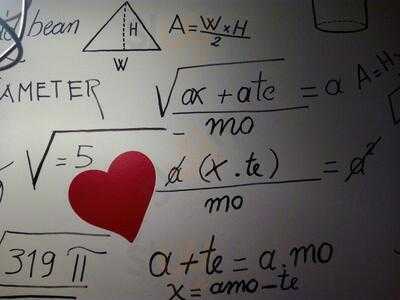 bean
H
A = W x H / 2
W
AMETER
√(ax + ate) / mo = a
A = H
√ = 5
a (x . te) / mo = a²
319 π
a + te = a . mo
x = amo - te